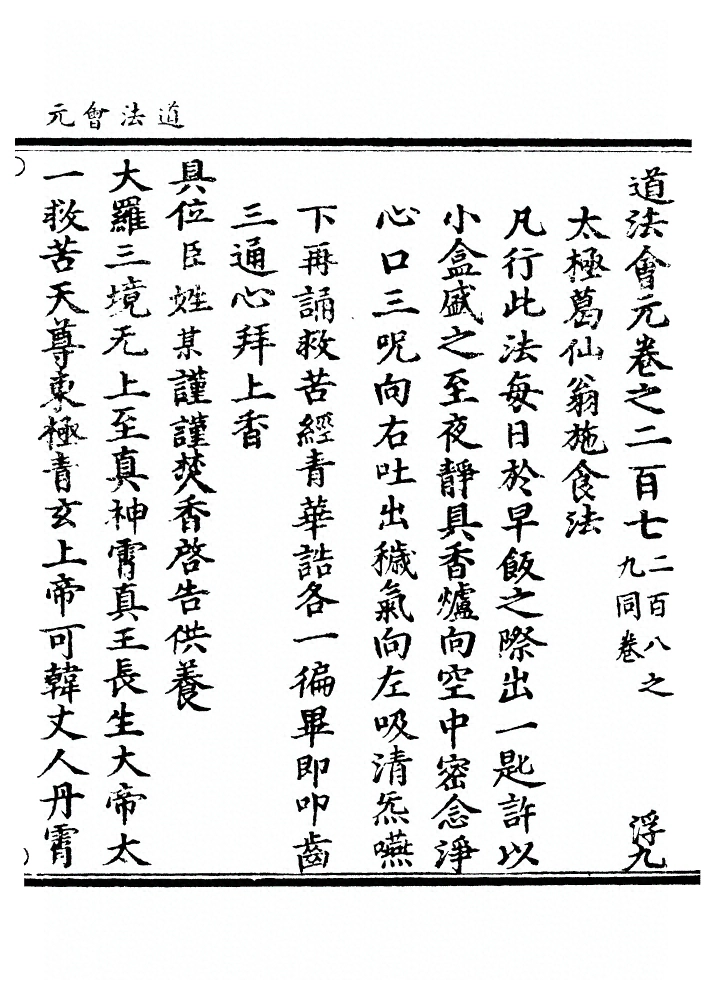 道法會元
道法會元卷之二百七 二百八之九同卷 浮九
太極葛仙翁施食法
凡行此法每日於早飯之際出一匙許以
小盒盛之至夜靜具香爐向空中密念淨
心口三呪向右吐出穢氣向左吸清炁嚥
下再誦救苦經青華誥各一徧畢即叩齒
三通心拜上香
具位臣姓某謹謹焚香啓告供養
大羅三境无上至真神霄真王長生大帝太
一救苦天尊東極青玄上帝可韓丈人丹霄